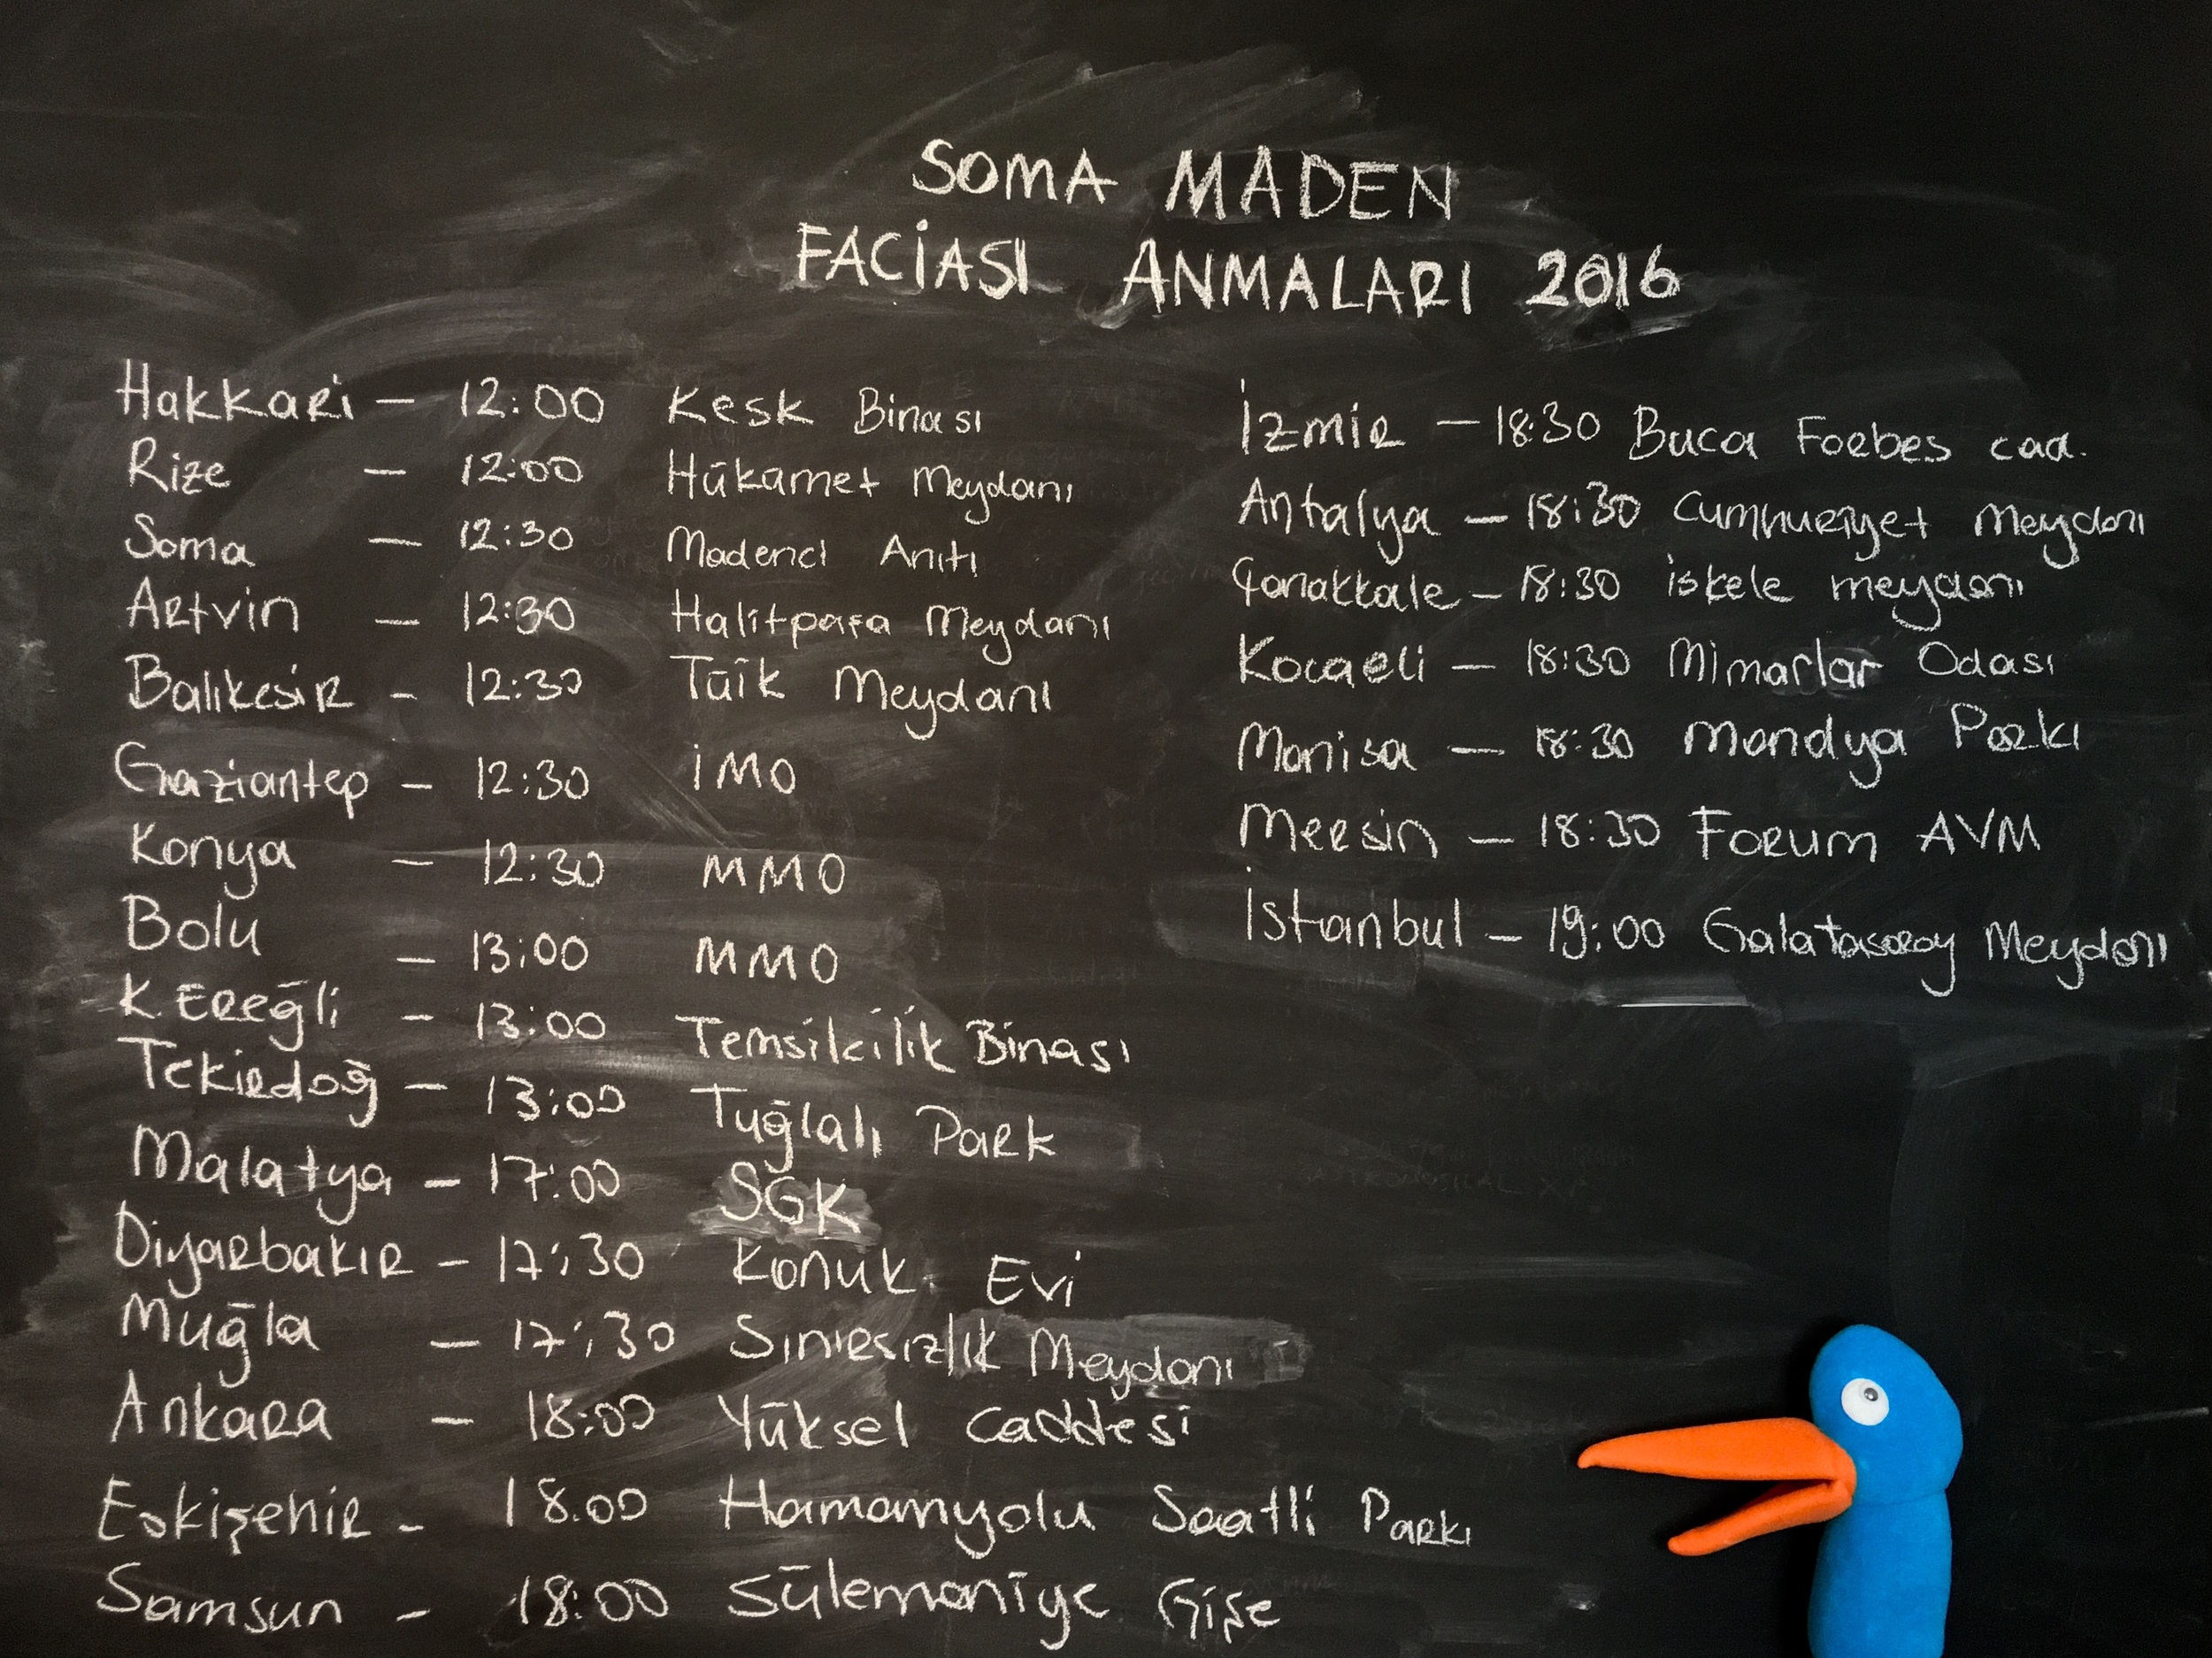 SOMA MADEN
FACİASI ANMALARI 2016
Hakkari – 12:00 Kesk Binası
Rize – 12:00 Hükamet Meydanı
Soma – 12:30 Madenci Anıtı
Artvin – 12:30 Halitpaşa Meydanı
Balıkesir – 12:30 Tüik Meydanı
Gaziantep – 12:30 İMO
Konya – 12:30 MMO
Bolu – 13:00 MMO
K.Ereğli – 13:00 Temsilcilik Binası
Tekirdağ – 13:00 Tuğlalı Park
Malatya – 17:00 SGK
Diyarbakır – 17:30 Konuk Evi
Muğla – 17:30 Sınırsızlık Meydanı
Ankara – 18:00 Yüksel caddesi
Eskişehir – 18.00 Hamamyolu Saatli Parkı
Samsun – 18:00 Sülemaniye Gişe
İzmir – 18:30 Buca Forbes cad.
Antalya – 18:30 Cumhuriyet Meydanı
Çanakkale – 18:30 iskele meydanı
Kocaeli – 18:30 Mimarlar Odası
Manisa – 18:30 Mandya Parkı
Mersin – 18:30 Forum AVM
İstanbul – 19:00 Galatasaray Meydanı